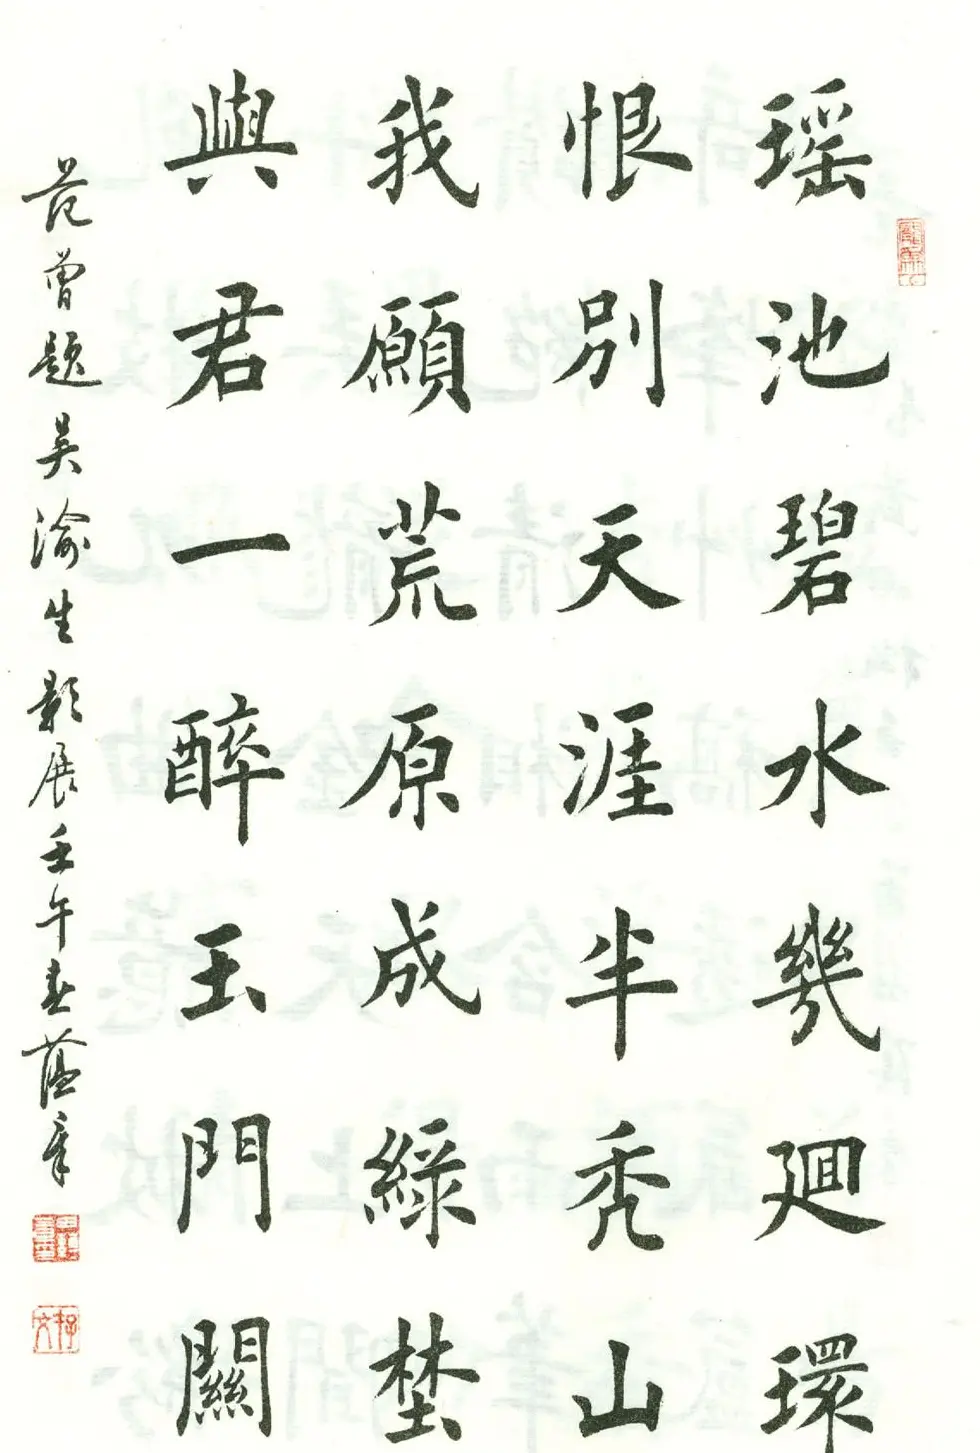 瑶池碧水幾迴環
恨別天涯半禿山
我願荒原成綠埜
與君一醉玉門關
范曾題吴渝生影展壬午春蕴章